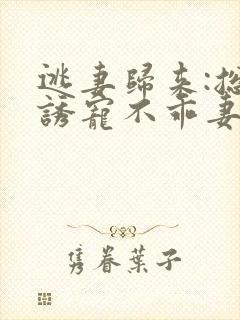 逃妻歸来:總
誘寵不乖妻
隽眷葉子